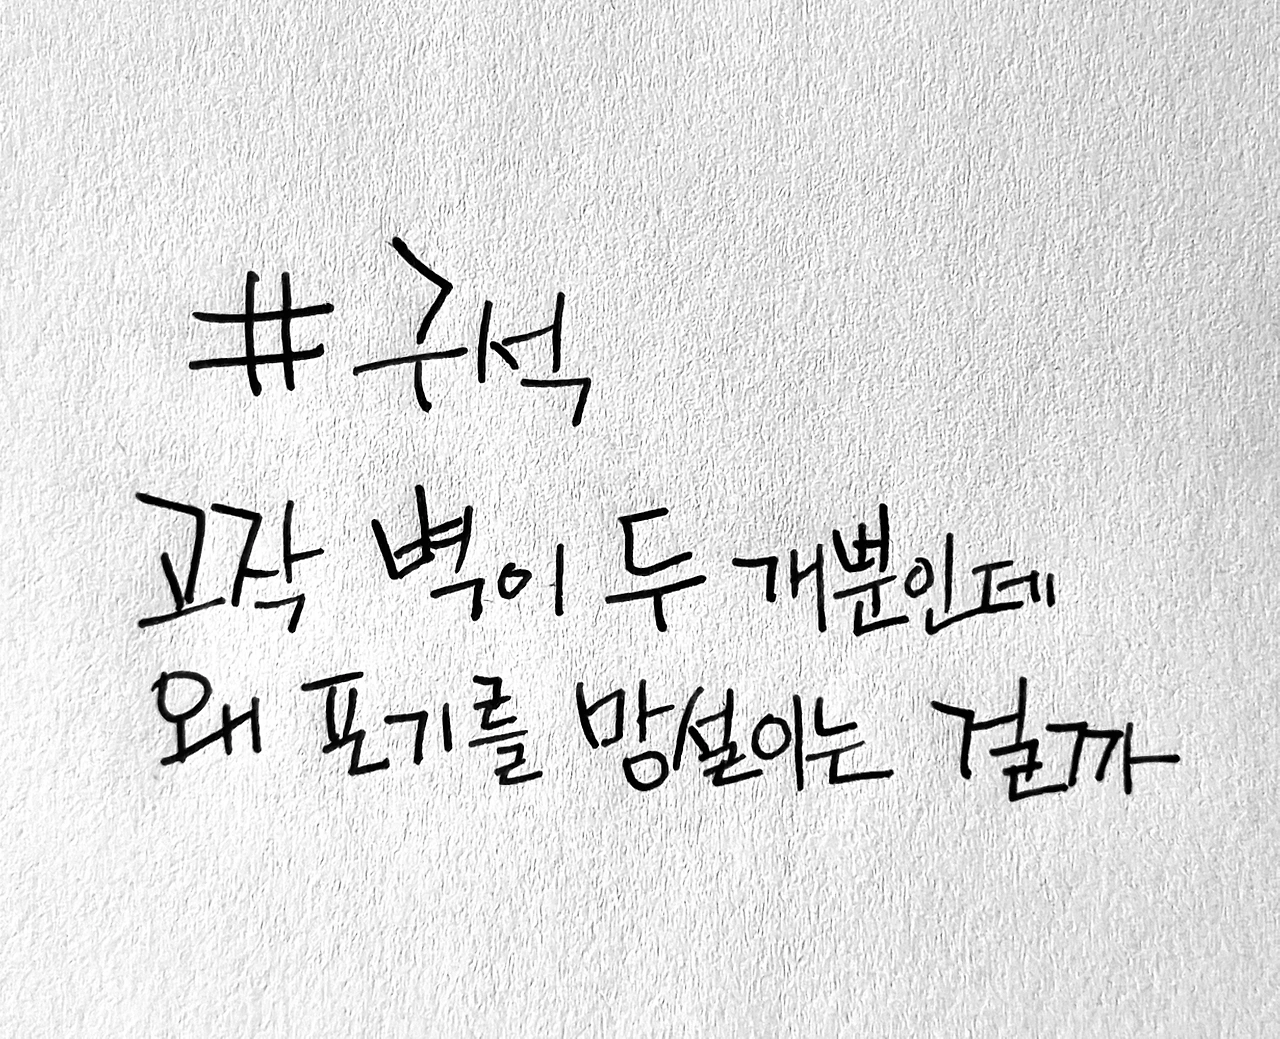 #구석
고작 벽이 두 개뿐인데
왜 포기를 망설이는 걸까